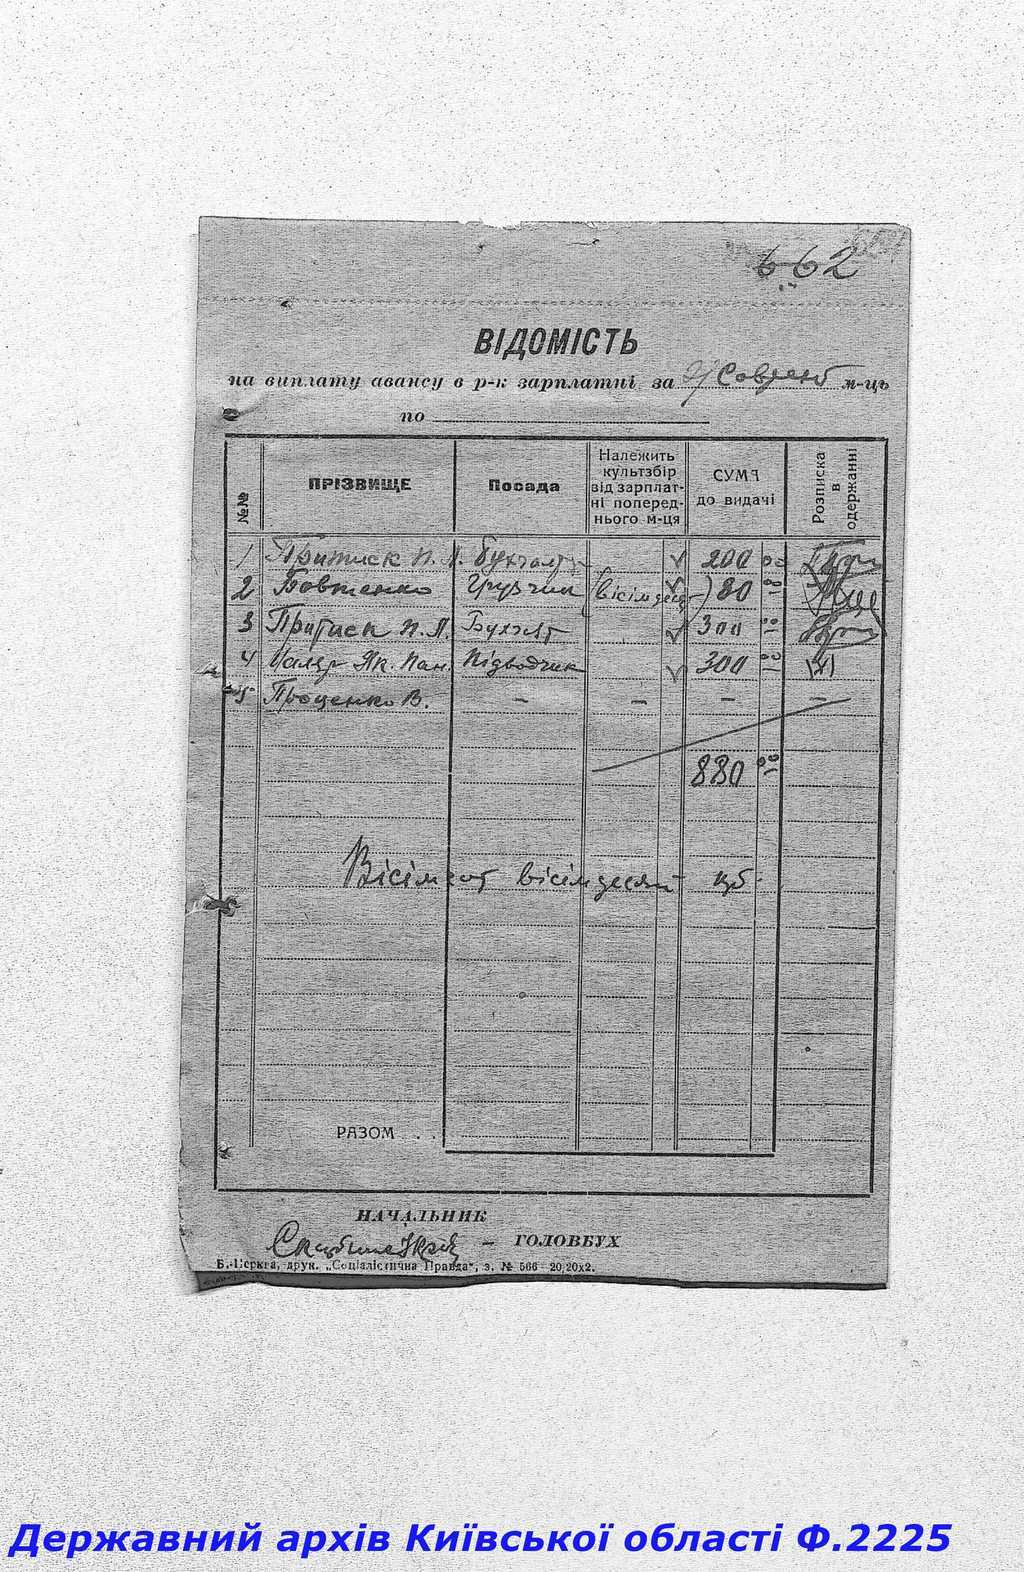 662
ВІДОМІСТЬ
на виплату авансу в р-к зарплатні за м-ць
по
№№ ПРІЗВИЩЕ Посада Належить культзбір від зарплат-ні поперед-нього м-ця СУМА до видачі Розписка в одержанні
1 Притиск П. П. Бухгалт 200 00
2 Бовтенко Грузчик (вісімдесят) 80 00
3 Притиск П. П. Бухгалт 300 00
4 Як. Пан. Підводчик 300 00
5 Проценко В. – – – –
880 00
Вісімсот вісімдесят крб.
РАЗОМ . .
НАЧАЛЬНИК
– ГОЛОВБУХ
Б.-Церква, друк. „Соціалістична Правда", з. № 566—20,20х2.
Державний архів Київської області Ф.2225